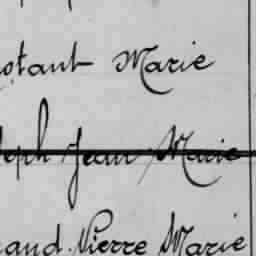 ostant Marie
seph Jean Marie
and. Pierre Marie